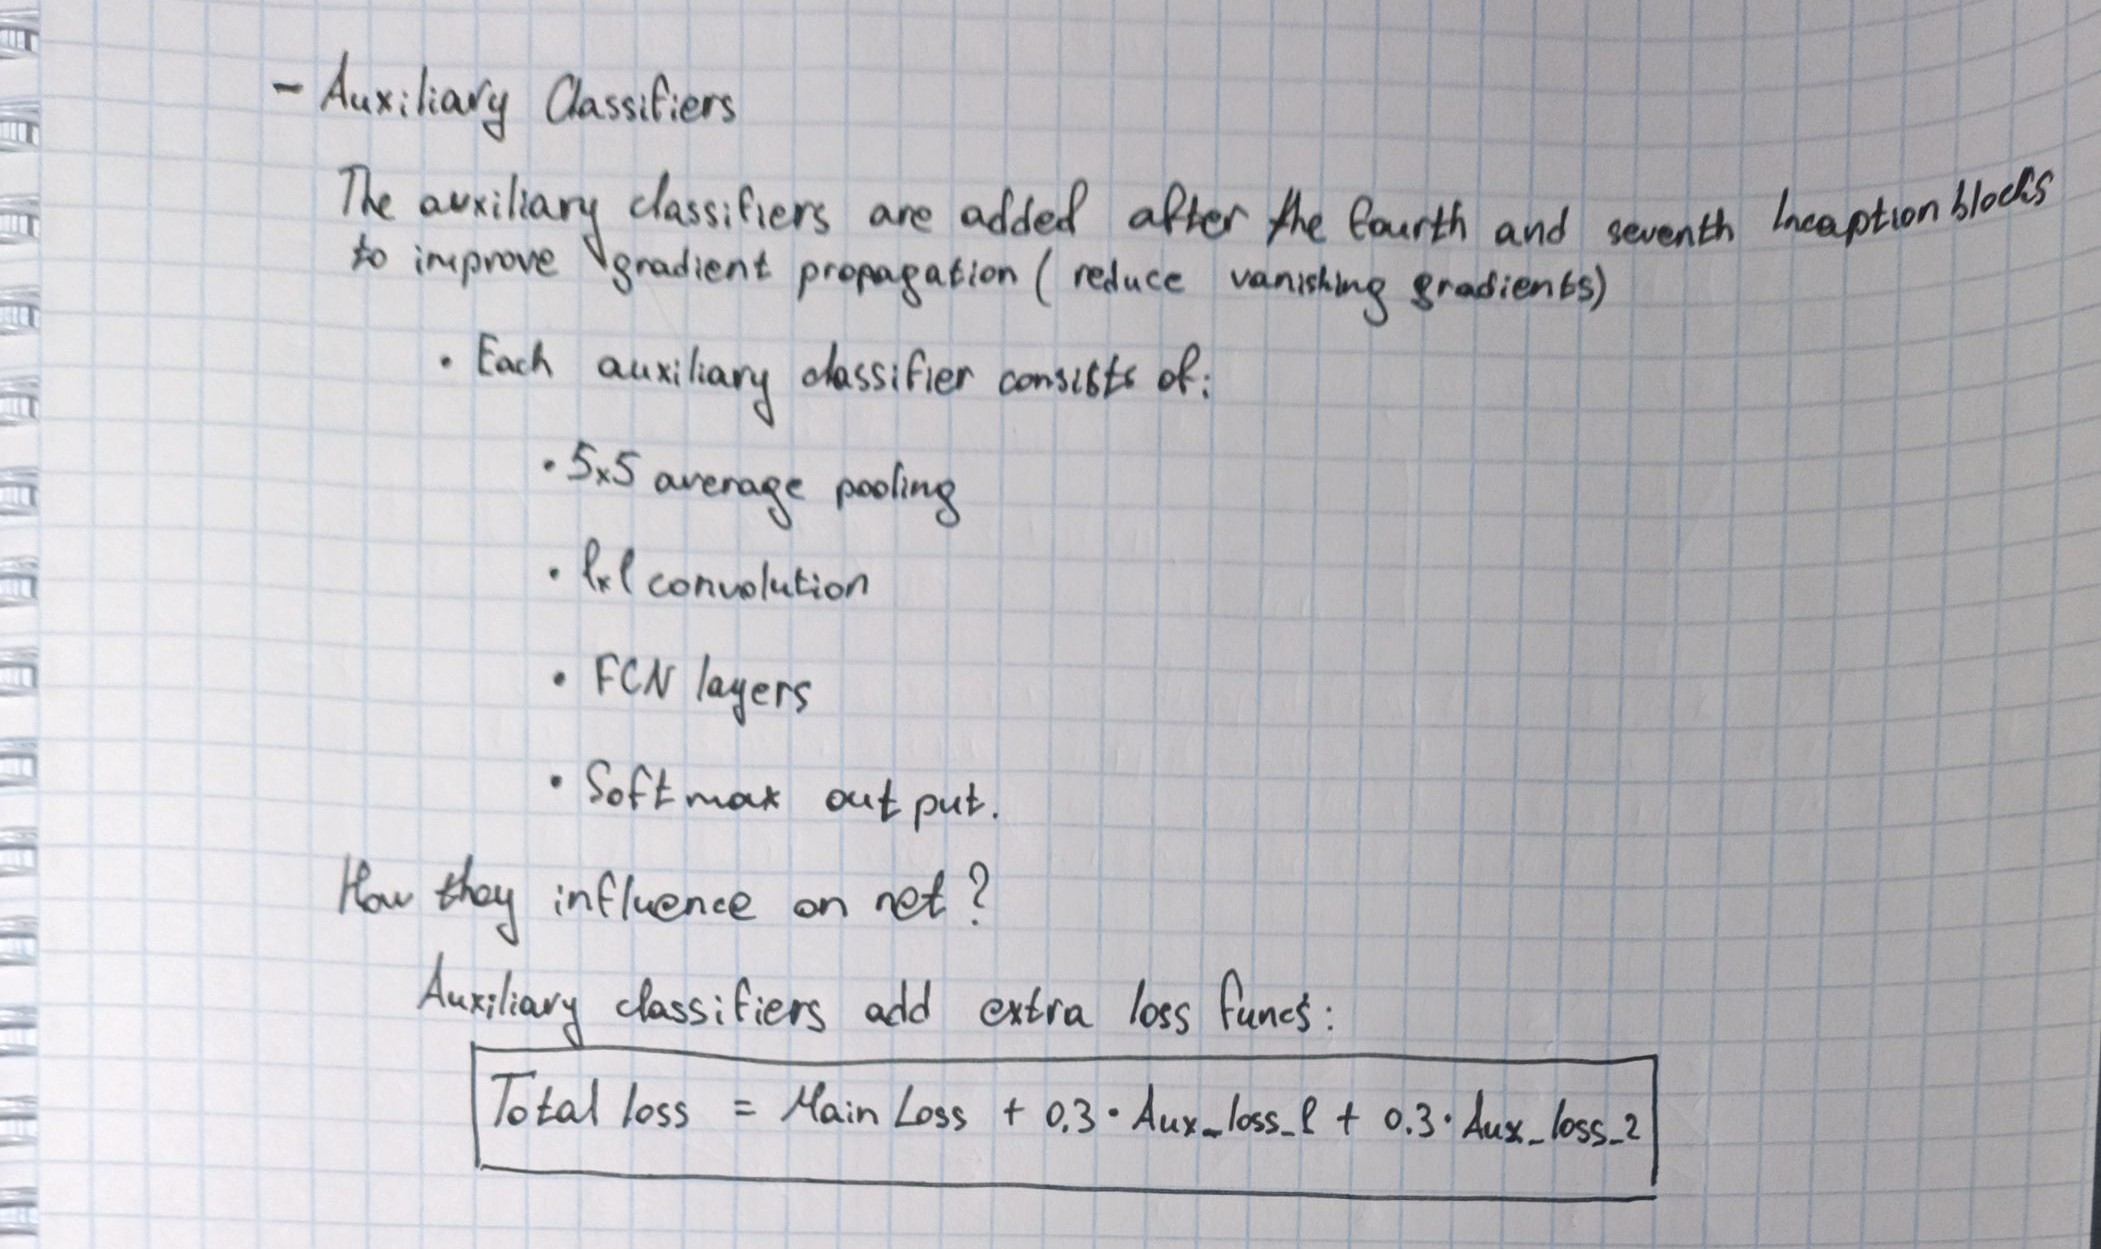 - Auxiliary Classifiers
The auxiliary classifiers are added after the fourth and seventh Inception blocks
to improve gradient propagation ( reduce vanishing gradients)
• Each auxiliary classifier consists of:
• 5x5 average pooling
• 1x1 convolution
• FCN layers
• Softmax output.
How they influence on net?
Auxiliary classifiers add extra loss funcs:
Total loss = Main Loss + 0.3 • Aux_loss_1 + 0.3 • Aux_loss_2